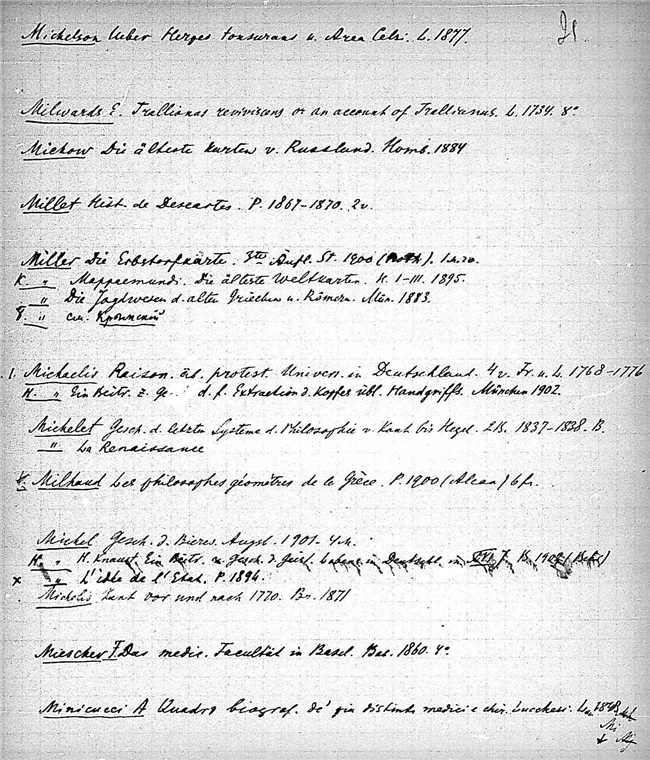 Michelson Ueber Herpes tonsurans u. Area Celsi. L. 1877.
Milwards E. Trallianus reviviscens or an account of Trallianus. L. 1734. 8°
Michow Die älteste Karten v. Russland. Hamb. 1884
Millet Hist. de Descartes. P. 1867-1870. 2v.
Miller Die Ebstorfkarte. 3te Aufl. St. 1900 (Roth).
K. " Mappaemundi. Die älteste Weltkarten. H. I-III. 1895.
" Die Jagdwesen d. alten Griechen u. Römern. Mün. 1883.
8. " см. Крымский
1. Michaelis Raison. üb. protest. Univers. in Deutschland. 4v. Fr. u. L. 1768-1776
H. " Ein Beitr. z. Ge. d. f. Extraction d. Kopfes übl. Handgriffs. München 1902.
Michelet Gesch. d. letzten Systeme d. Philosophie v. Kant bis Hegel. 2B. 1837-1838. B.
" La Renaissance
V. Milhaud Les philosophes géomètres de la Grèce. P. 1900 (Alcan) 6 fr.
Michel Gesch. d. Bieres. Augsb. 1901.
H. " H. Knaust. Ein Beitr. z. Gesch. d. Geist. Lebens in Deutschl. im XVI J. B. (Behr)
x " L'idée de l'Etat. P. 1894.
Michelis Kant vor und nach 1770. Br. 1871
Miescher F. Das medic. Facultät in Basel. Bas. 1860. 4°
Minicucci A Quadro biograf. de' più distinti medici e chir. Lucchesi.